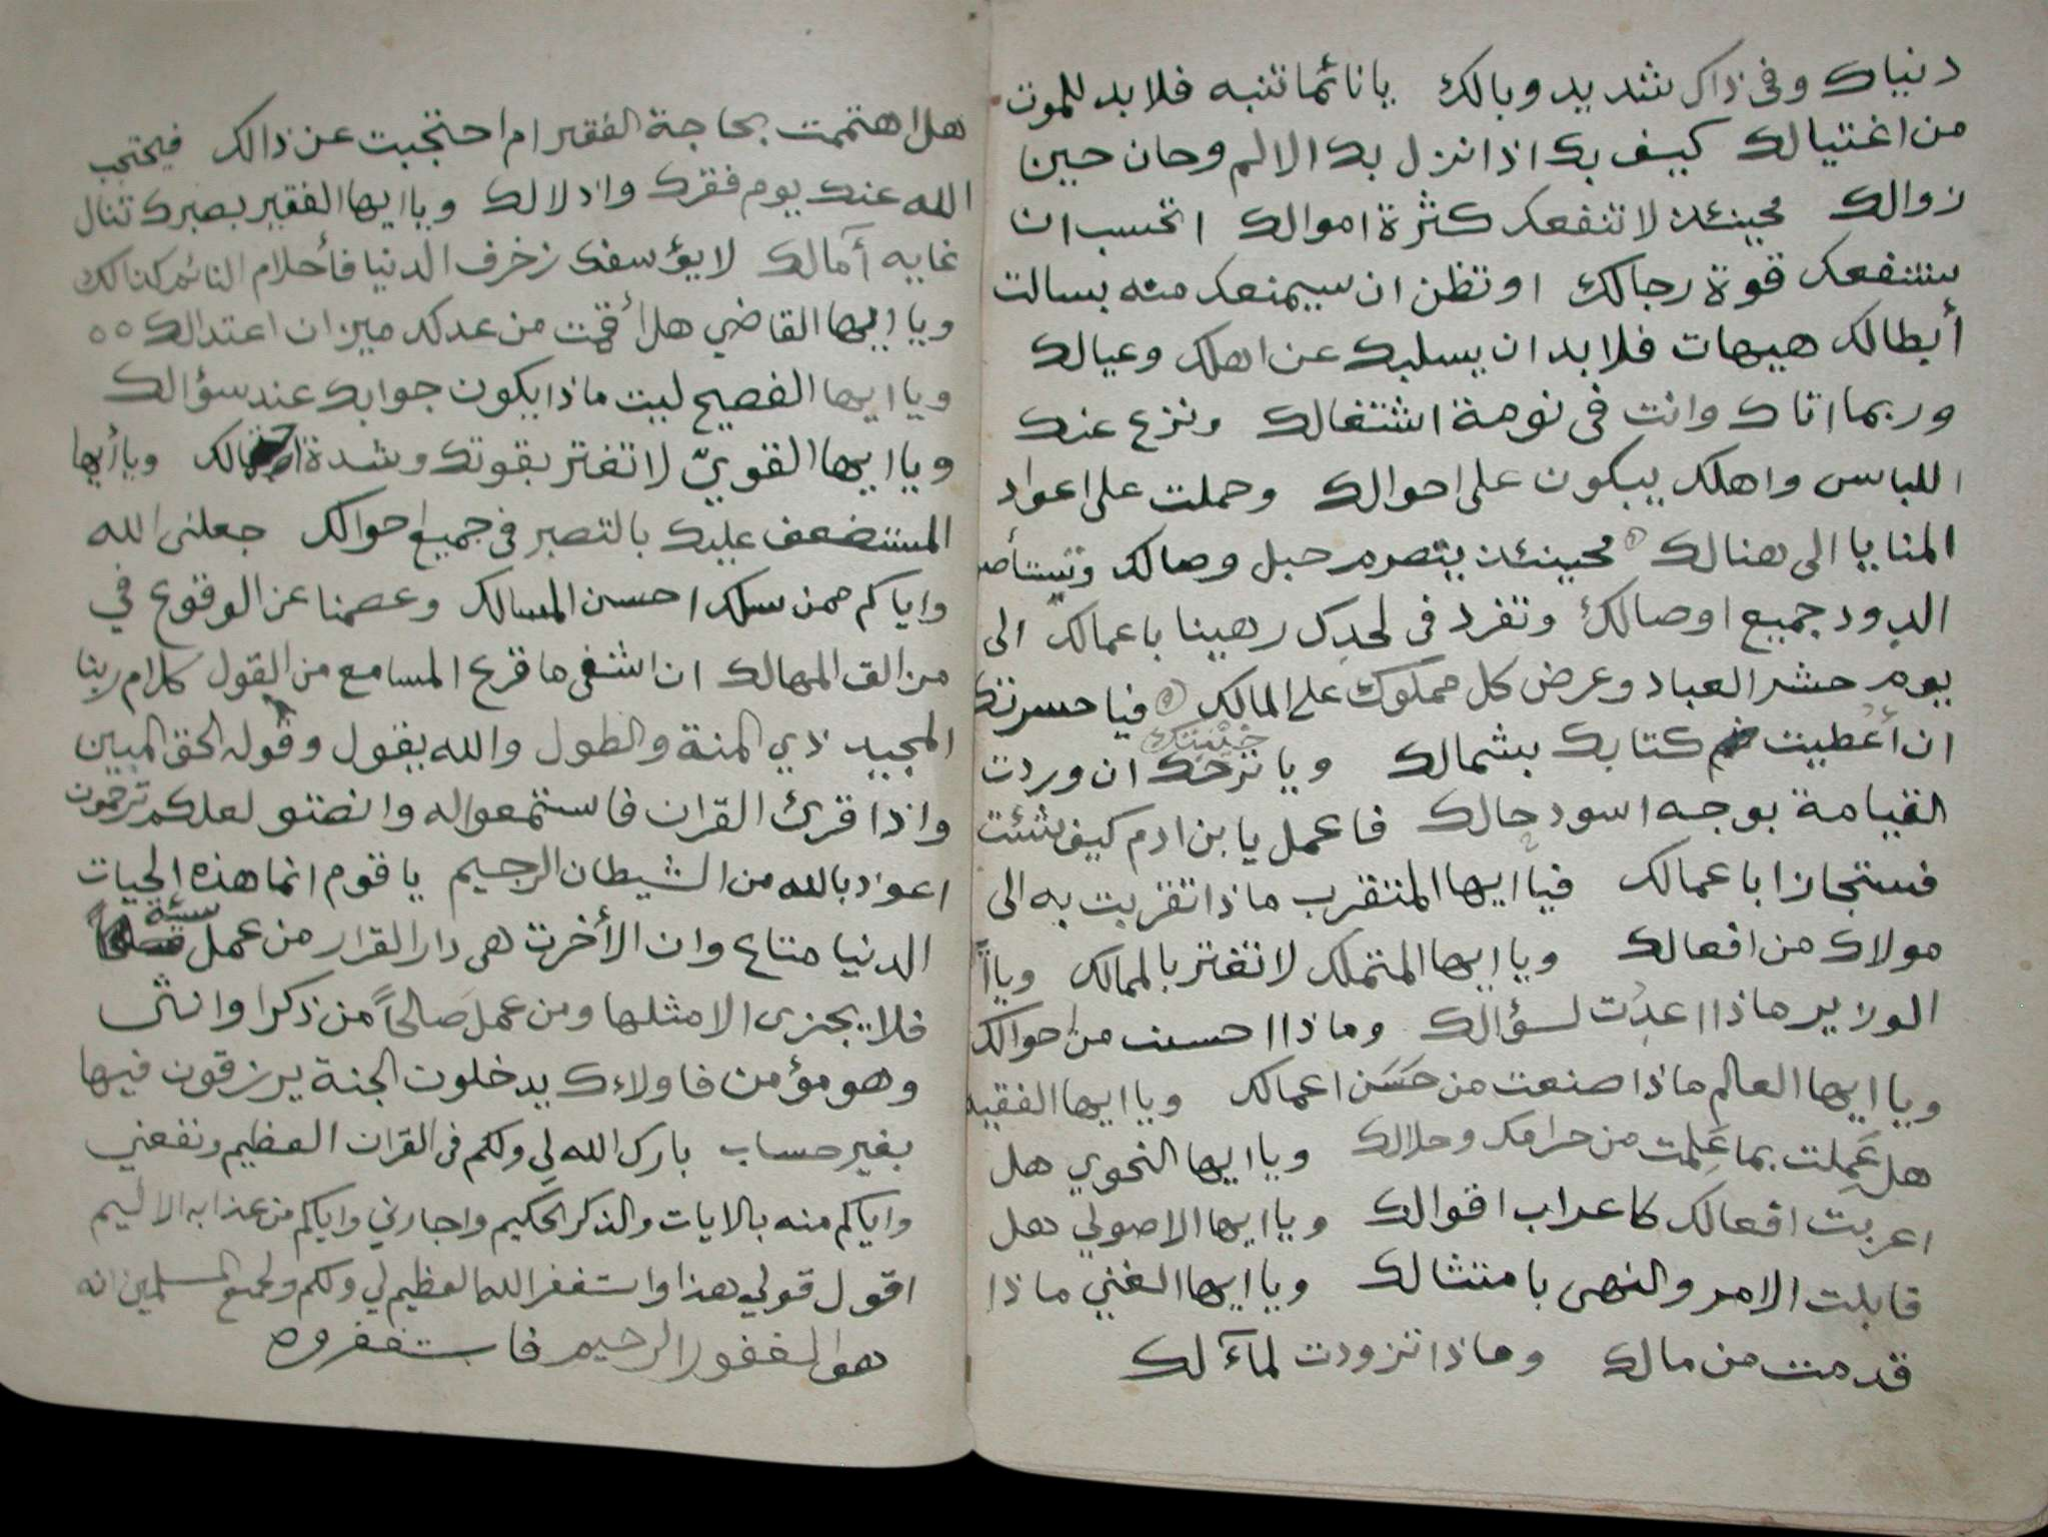 دنياك وفى ذاك شديد وبالك يا نائما تنبه فلا بد للموت
من اغتيالك كيف بك اذا نزل بك الالم وحان حين
زوالك فحينئذ لا تنفعك كثرة اموالك اتحسب ان
ستنفعك قوة رجالك او تظن ان سيمنعك منه بسالت
أبطالك هيهات فلا بد ان يسلبك عن اهلك وعيالك
وربما اتاك وانت فى نومة اشتغالك ونزع عنك
اللباس واهلك يبكون على احوالك وحملت على اعواد
المنايا الى هنالك فحينئذ يتصرم حبل وصالك وتستأصل
الدود جميع اوصالك وتفرد فى لحدك رهينا باعمالك الى
يوم حشر العباد وعرض كل مملوك على المالك فيا حسرتك
ان أعطيت كتابك بشمالك ويا خيبتك ان وردت
القيامة بوجه اسود حالك فاعمل يا بن ادم كيف شئت
فستجازا باعمالك فيا ايها المتقرب ماذا تقربت به الى
مولاك من افعالك ويا ايها المتملك لا تغتر بالممالك ويا أ
الوزير ماذا اعدت لسؤالك وماذا احسنت من احوالك
ويا ايها العالم ماذا صنعت من حَسَن اعمالك ويا ايها الفقيه
هل عَمِلت بما عَلِمت من حرامك وحلالك ويا ايها النحوي هل
اعربت افعالك كاعراب اقوالك ويا ايها الاصولي هل
قابلت الامر والنهى بامتثالك ويا ايها الغني ماذا
قدمت من مالك وماذا تزودت لمآلك
هلا اهتممت بحاجة الفقير ام احتجبت عن ذالك فيحتجب
الله عنك يوم فقرك واذلالك ويا ايها الفقير بصبرك تنال
غايه آمالك لا يؤسفك زخرف الدنيا فأحلام النائم كذالك
ويا ايها القاضي هل أقمت من عدلك ميزان اعتدالك ٥٥
ويا ايها الفصيح ليت ماذا يكون جوابك عند سؤالك
ويا ايها القويّ لا تغتر بقوتك وشدة ويا أيها
المستضعف عليك بالتصبر فى جميع احوالك جعلنى الله
واياكم ممن سلك احسن المسالك وعصمنا عن الوقوع في
مزالق المهالك ان اشفى ما قرع المسامع من القول كلام ربنا
المجيد ذي المنة والطول والله يقول وقوله الحق المبين
واذا قرئ القران فاستمعوا له وانصتو لعلكم ترحمون
اعوذ بالله من الشيطان الرجيم يا قوم انما هذه الحيات
الدنيا متاع وان الأخرت هى دار القرار من عمل سيئه
فلا يجزى الا مثلها ومن عمل صَالحاً من ذكرا وانثى
وهو مؤمن فاولاءك يدخلون الجنة يرزقون فيها
بغير حساب بارك الله لي ولكم فى القران العظيم ونفعني
واياكم منه بالايات والذكر الحكيم واجارني واياكم من عذابه الاليم
اقول قولي هذا واستغفر الله العظيم لي ولكم ولجميع المسلمين انه
هو الغفور الرحيم فاستغفروه